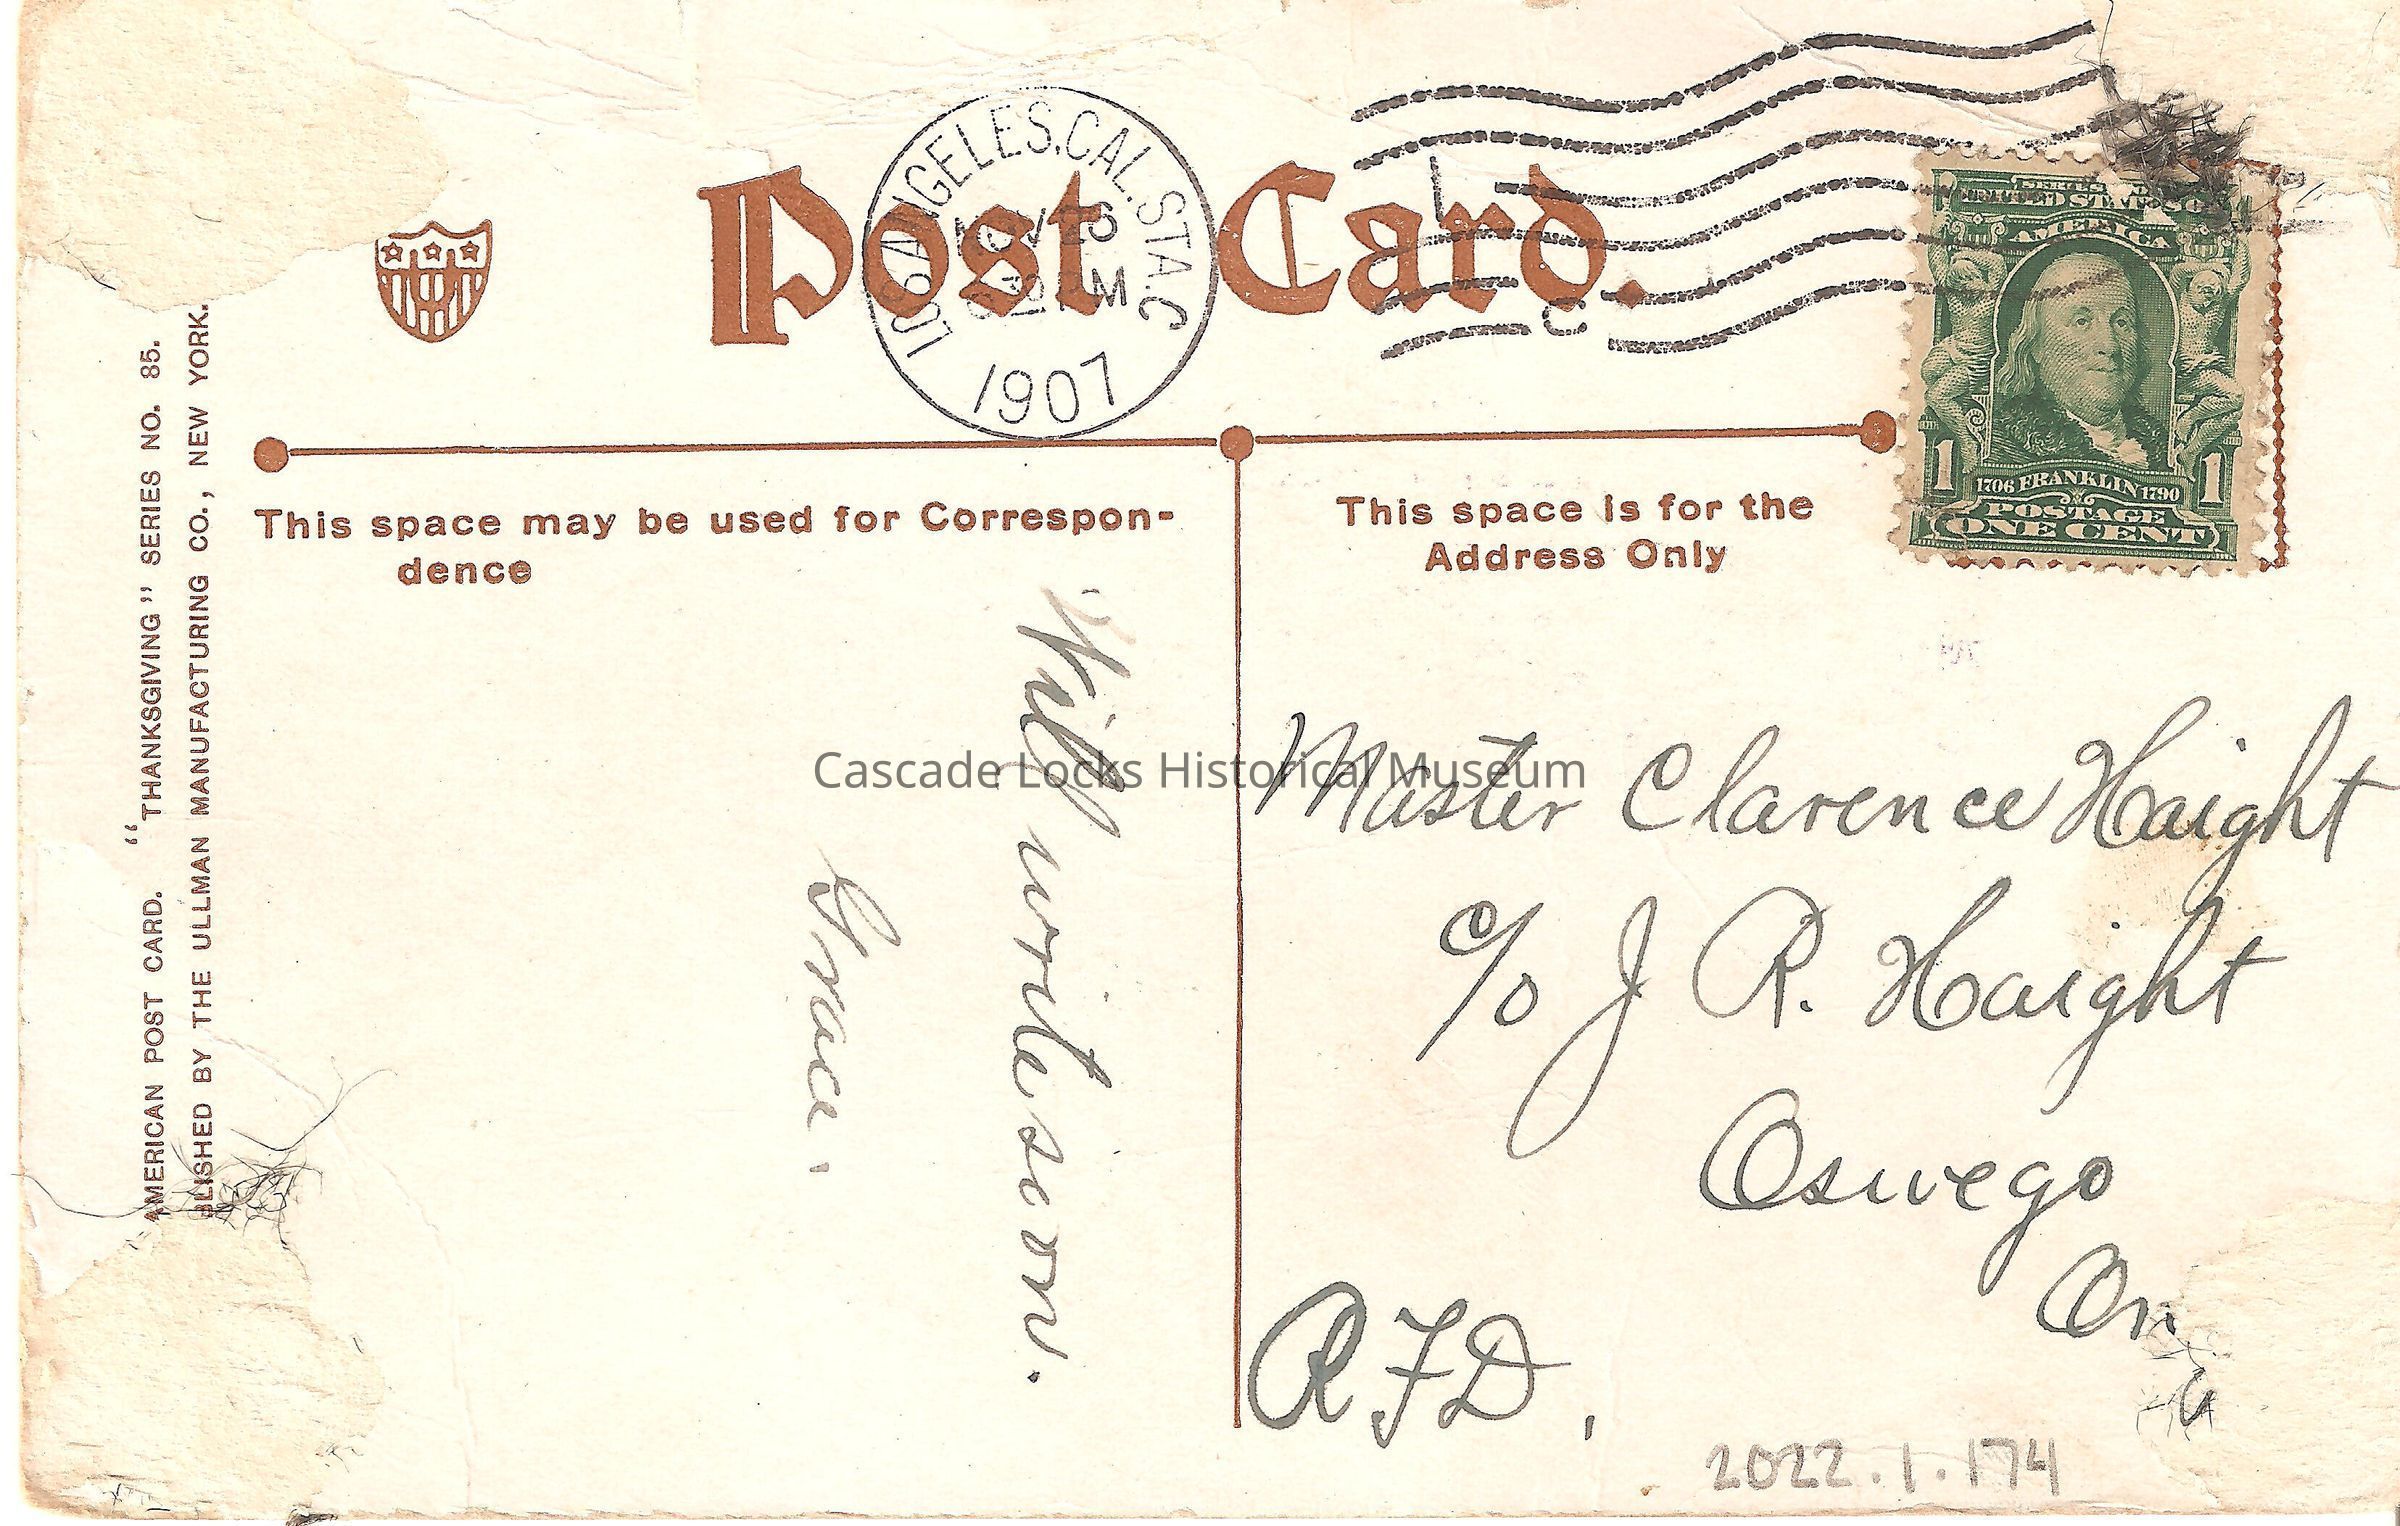 Post Card.
LOS ANGELES, CAL. STA. C
NOV 26
1907
SERIES
UNITED STATES OF
AMERICA
1706 FRANKLIN 1790
1 1
POSTAGE
ONE CENT
This space may be used for Correspon-
dence
This space is for the
Address Only
AMERICAN POST CARD. "THANKSGIVING" SERIES NO. 85.
BLISHED BY THE ULLMAN MANUFACTURING CO., NEW YORK.
Will write soon.
Grace.
Master Clarence Haight
c/o J R. Haight
Oswego
R F D.
2022.1.174
Cascade Locks Historical Museum